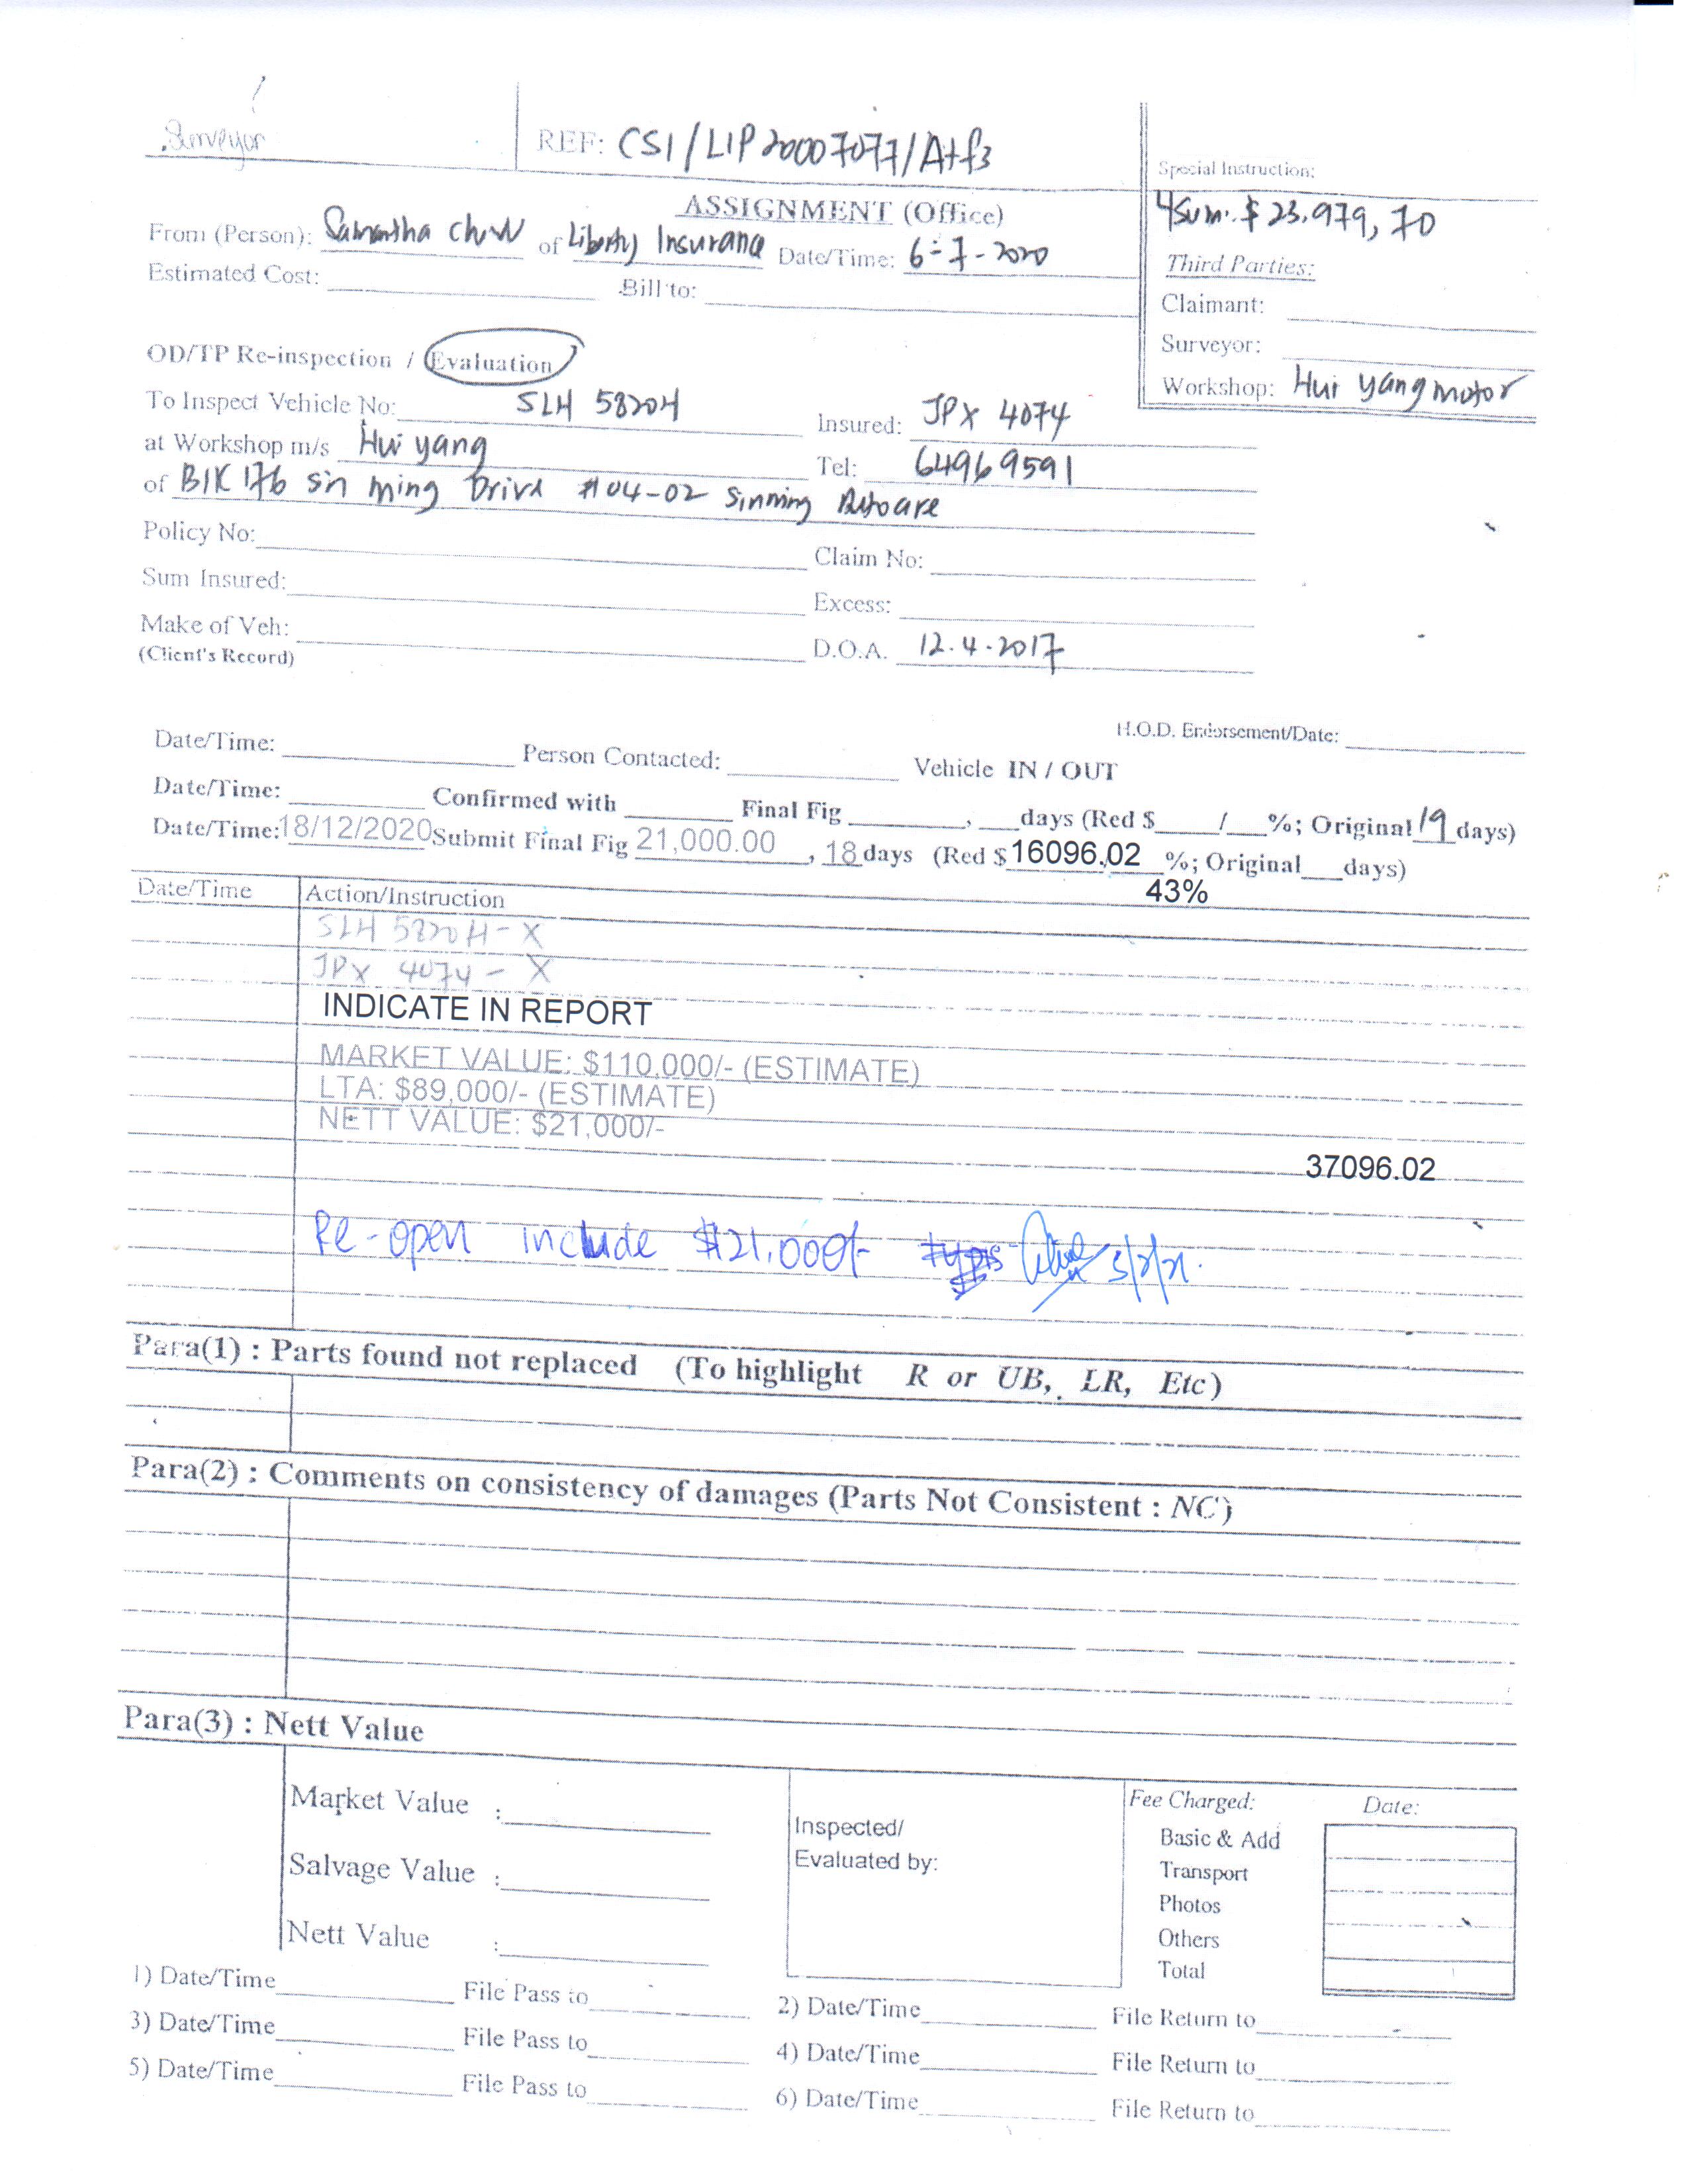 Surveyor
REF: CSI/LIP20007077/Atf3
Special Instruction:
ASSIGNMENT (Office)
$23.979,70
From (Person): Samantha Chew of Liberty Insurance Date/Time: 6-7-2020
Third Parties:
Estimated Cost: Bill to:
Claimant:
Surveyor:
OD/TP Re-inspection / Evaluation
Workshop: Hui yang motor
To Inspect Vehicle No: SLH 5820H Insured: JPX 4074
at Workshop m/s Hui yang Tel: 64969591
of Blk 176 Sin ming Drive #04-02 Sinming Autocare
Policy No: Claim No:
Sum Insured: Excess:
Make of Veh: D.O.A. 12.4.2017
(Client's Record)
H.O.D. Endorsement/Date:
Date/Time: Person Contacted: Vehicle IN / OUT
Date/Time: Confirmed with Final Fig , days (Red $ / %; Original 19 days)
Date/Time: 18/12/2020 Submit Final Fig 21,000.00 , 18 days (Red $ 16096.02 %; Original days)
43%
Date/Time Action/Instruction
SLH 5820H - X
JPX 4074 - X
INDICATE IN REPORT
MARKET VALUE: $110,000/- (ESTIMATE)
LTA: $89,000/- (ESTIMATE)
NETT VALUE: $21,000/-
37096.02
Re-open include $21,000/-
Para(1) : Parts found not replaced (To highlight R or UB, LR, Etc)
Para(2) : Comments on consistency of damages (Parts Not Consistent : NC)
Para(3) : Nett Value
Market Value :
Salvage Value :
Nett Value :
Inspected/
Evaluated by:
Fee Charged: Date:
Basic & Add
Transport
Photos
Others
Total
1) Date/Time File Pass to 2) Date/Time File Return to
3) Date/Time File Pass to 4) Date/Time File Return to
5) Date/Time File Pass to 6) Date/Time File Return to